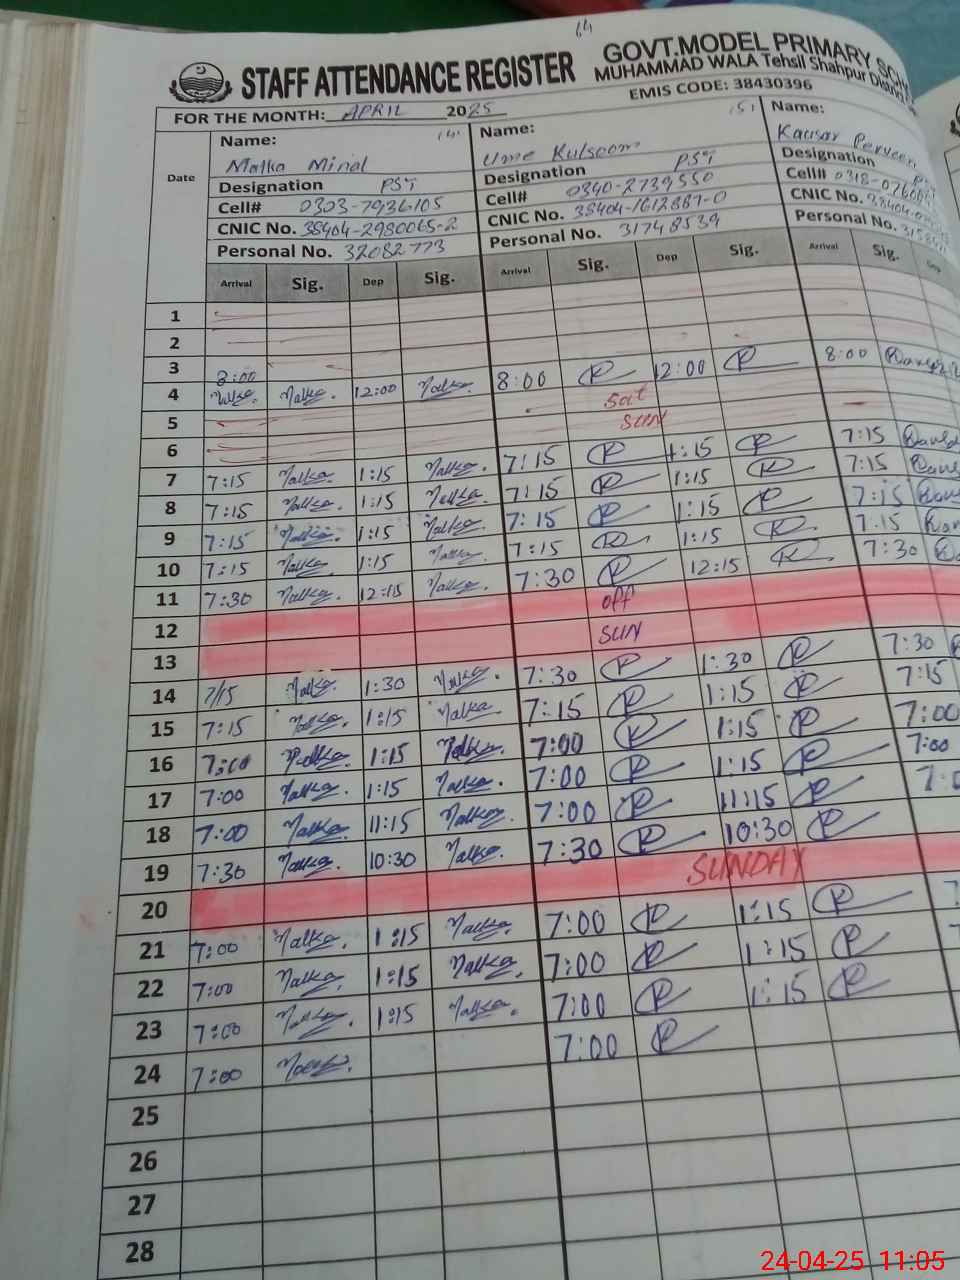 64
STAFF ATTENDANCE REGISTER GOVT.MODEL PRIMARY
MUHAMMAD WALA Tehsil Shahpur
EMIS CODE: 38430396
FOR THE MONTH: APRIL 2025
Date Name: Malka Minal (4) Name: Ume Kulsoom (5) Name: Kausar Perveen
Designation PST Designation PST Designation
Cell# 0303-7936105 Cell# 0340-2739550 Cell# 0318-
CNIC No. 38404-2980065-2 CNIC No. 38404-1612887-0 CNIC No. 38404-
Personal No. 32082773 Personal No. 31748539 Personal No.
Arrival Sig. Dep Sig. Arrival Sig. Dep Sig. Arrival Sig. Dep
1
2
3
4 8:00 Malka Malka. 12:00 Malka. 8:00 R 12:00 R 8:00
5 Sat
6 SUN
7 7:15 Malka. 1:15 Malka. 7:15 R 1:15 R 7:15
8 7:15 Malka. 1:15 Malka. 7:15 R 1:15 R 7:15
9 7:15 Malka. 1:15 Malka. 7:15 R 1:15 R 7:15
10 7:15 Malka. 1:15 Malka. 7:15 R 1:15 R 7:15
11 7:30 Malka. 12:15 Malka. 7:30 R 12:15 R 7:30
12 off
13 SUN
14 7/15 Malka. 1:30 Malka. 7:30 R 1:30 R 7:30
15 7:15 Malka. 1:15 Malka 7:15 R 1:15 R 7:15
16 7:00 Malka. 1:15 Malka. 7:00 R 1:15 R 7:00
17 7:00 Malka. 1:15 Malka. 7:00 R 1:15 R 7:00
18 7:00 Malka. 11:15 Malka. 7:00 R 11:15 R
19 7:30 Malka. 10:30 Malka. 7:30 R 10:30 R
20 SUNDAY
21 7:00 Malka. 1:15 Malka. 7:00 R 1:15 R
22 7:00 Malka. 1:15 Malka. 7:00 R 1:15 R
23 7:00 Malka. 1:15 Malka. 7:00 R 1:15 R
24 7:00 Malka. 7:00 R
25
26
27
28
24-04-25 11:05